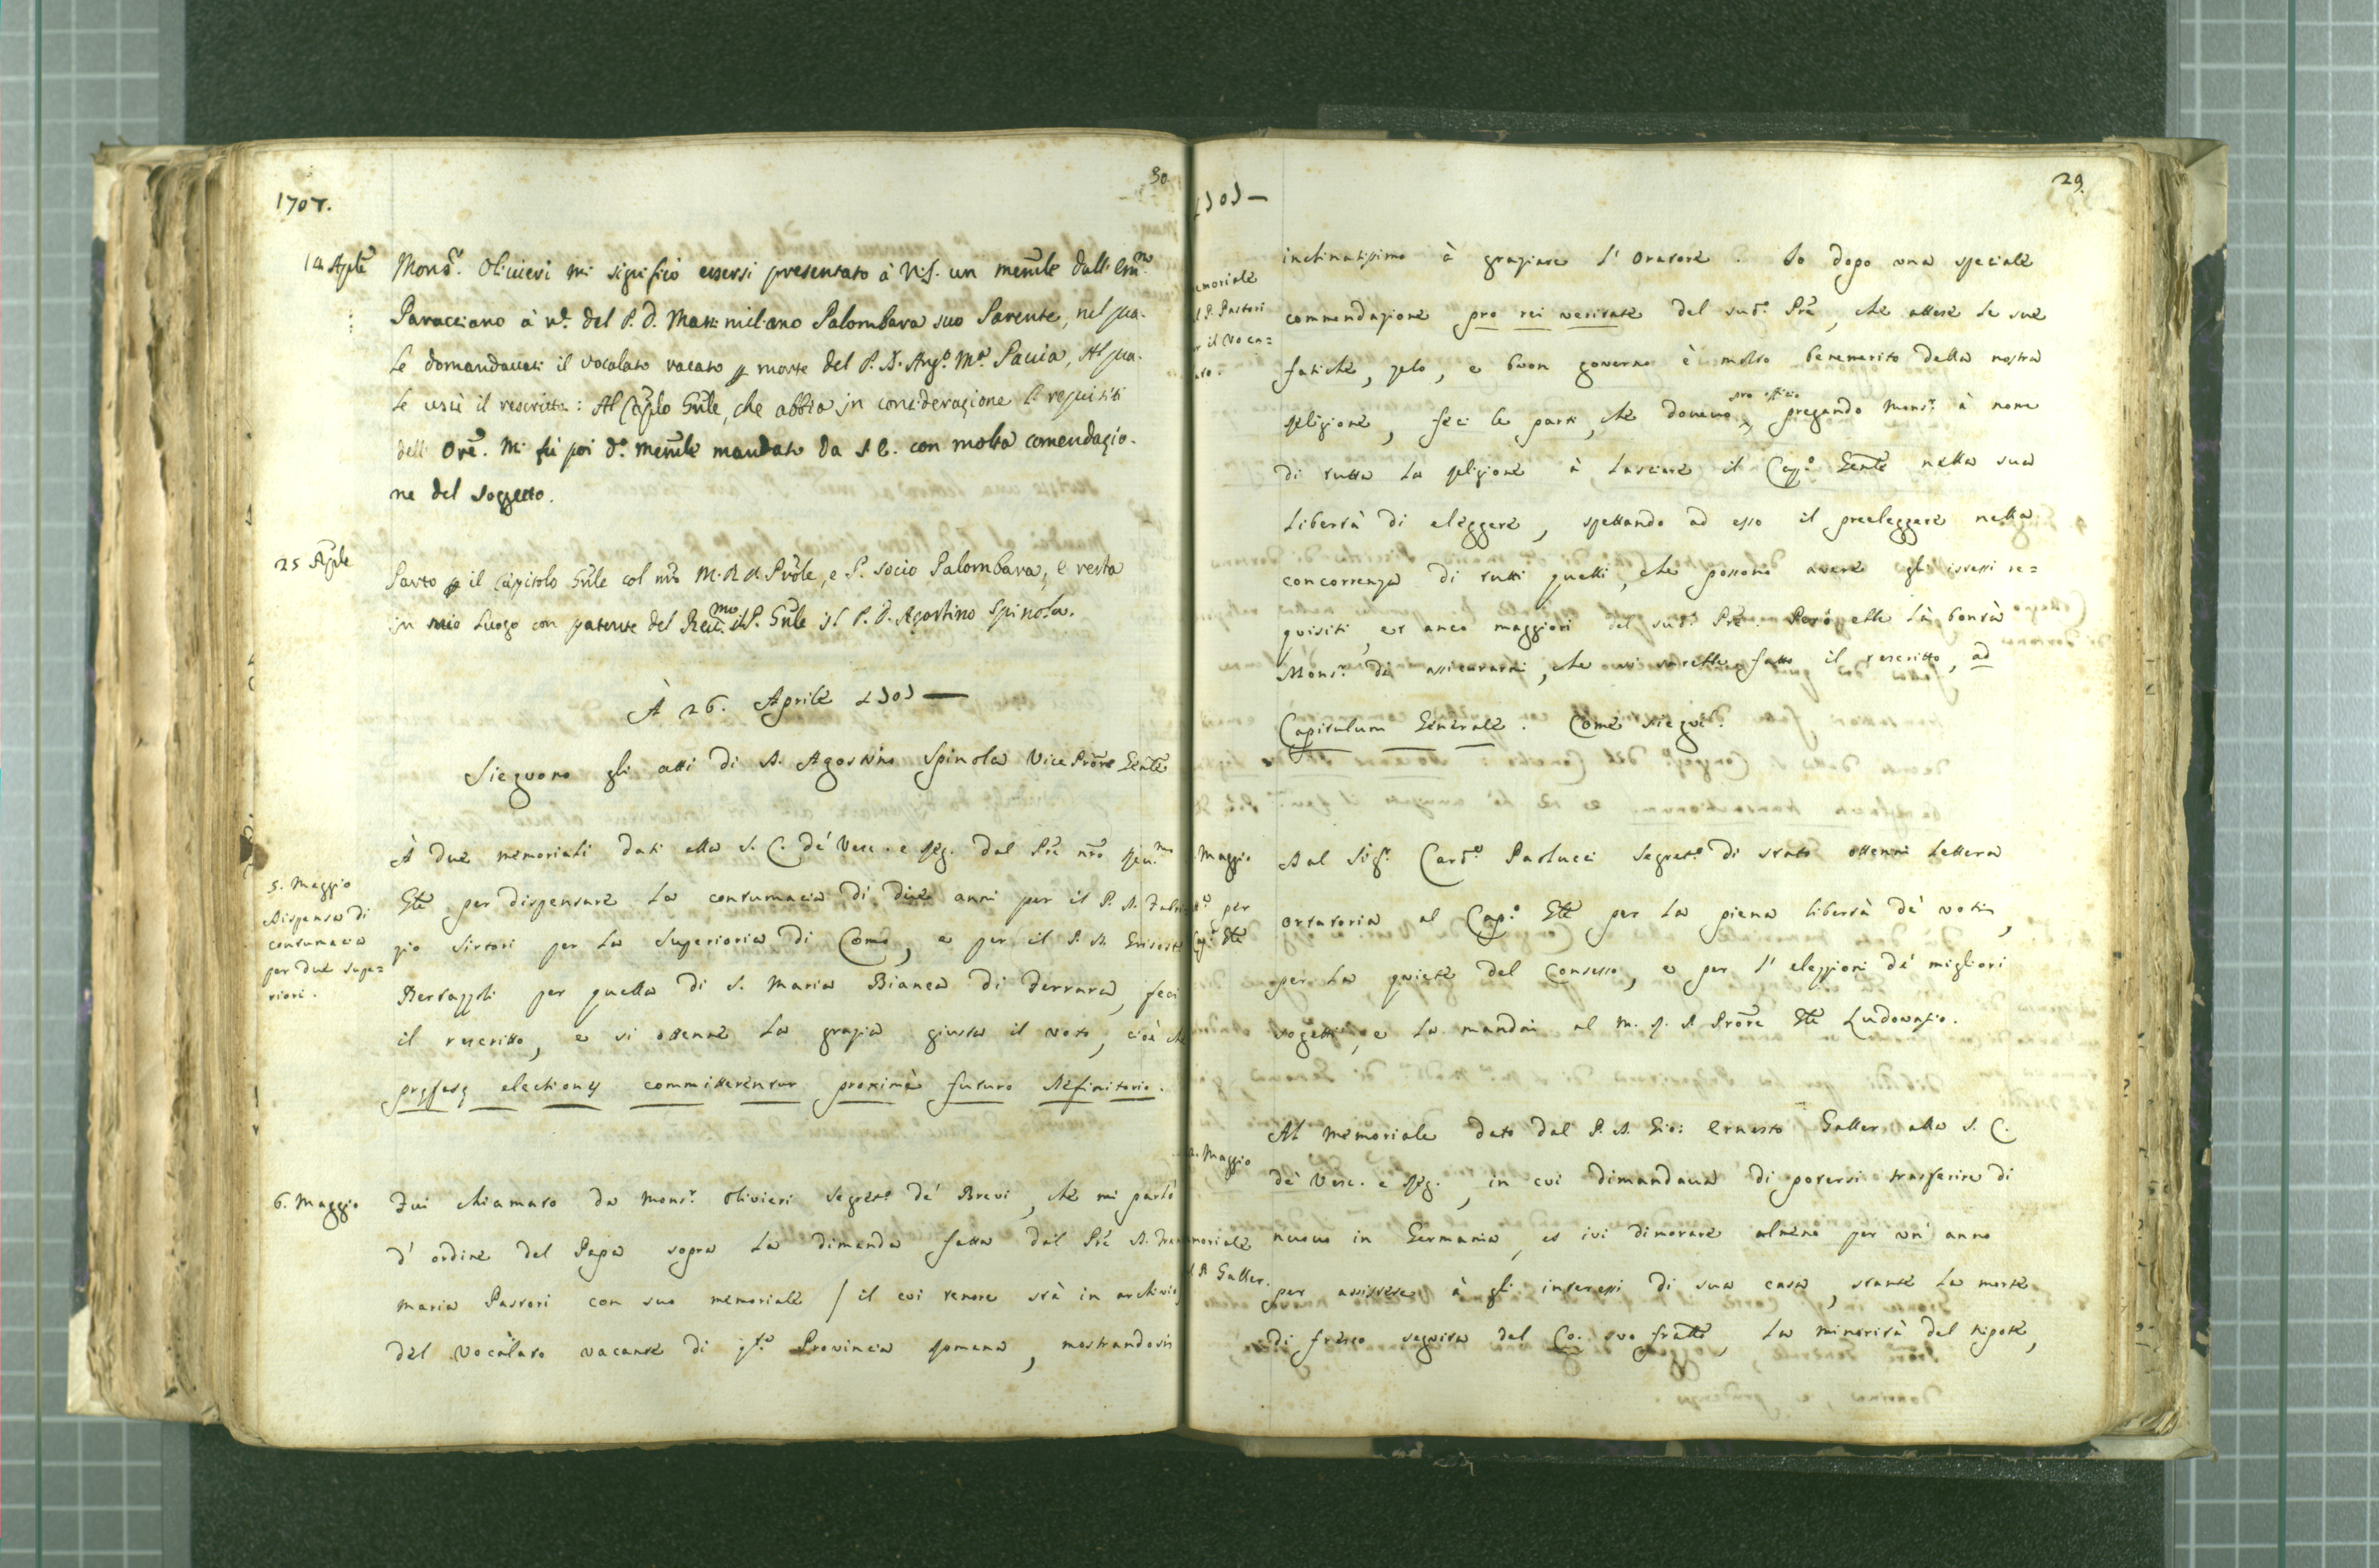 30
1707.
14 Aple
Mons.r Oliuieri mi significò essersi presentato à N.S. un memle dall'Em.mo
Paracciano à n.e del P. D. Massimiliano Palombara suo Parente, nel qua-
le domandauasi il vocalato vacato p morte del P. D. Ang.o M.a Pauia, Al qua-
le uscì il rescritto: Al Caplo Gnle, che abbia in considerazione li requisiti
dell'Ore. Mi fù poi d.o memle mandato da S E. con molta comendazio-
ne del soggetto.
25 Aple
Parto p il Capitolo Gnle col mto M.R.P. Prole, e P. socio Palombara, e resta
in mio luogo con patente del Reu.mo P. Gnle il P. D. Agostino Spinola.
À 26. Aprile 1707 —
Sieguono gli atti di D. Agostino Spinola Vice Prõre Genle
5. Maggio
Dispensa di
contumacia
per due supe=
riori.
À due memoriali dati alla S. C. de' Vesc. e Reg. dal Pre nro Reu.mo
Gle per dispensare la contumacia di due anni per il P. D. Fabri
zio Sirtori per la superioria di Como, e per il P. D. Grisost
Bertazzoli per quella di S. Maria Bianca di Ferrara, feci
il rescritto, e si ottenne la grazia giusta il voto, cioè che
præfatæ electiones committerentur proximè futuro Definitorio.
6. Maggio
Fui chiamato da Mons.r Olivieri Segret.o de' Brevi, che mi parlò
d'ordine del Papa sopra la dimanda fatta dal Pre D. Fran
Maria Pastori con suo memoriale / il cui tenore stà in archivio
del vocalato vacante di q.ta Provincia Romana, mostrandosi
29.
1707 —
emoriale
l P. Pastori
r il Voca=
ato.
inclinatissimo à graziare l'Oratore. Io dopo una speciale
commendazione pro rei veritate del sud.o Pre, che attese le sue
fatiche, zelo, e buon governo è molto benemerito della nostra
Religione, feci le parti, che doveuo pro officio, pregando Mons.r à nome
di tutta la Religione à lasciare il Cap.o Genle nella sua
libertà di eleggere, spettando ad esso il preeleggere nella
concorrenza di tutti quelli, che possono avere gli istessi re=
quisiti, et anco maggiori del sud.o Pre. Però ebbe la bontà
Mons.r di assicurarmi, che si sarebbe fatto il rescritto, ad
Capitulum Generale. Come siegui.
Maggio
per
Cap.o Gle
Dal Sig.r Card.e Paolucci Segret.o di stato ottenni lettera
ortatoria al Cap.o Gle per la piena libertà de' voti,
per la quiete del Consesso, e per l'elezzioni de' migliori
sogetti, e la mandai al M. R. P. Prõre Gle Ludovasio.
Maggio
moriale
l P. Galler.
Al memoriale dato dal P. D. Gio: Ernesto Galler alla S. C.
de' Vesc. e Reg., in cui dimandaua di potersi trasferire di
nuouo in Germania, et ivi dimorare almeno per un'anno
per assistere à gli interessi di sua casa, stante la morte
di fresco seguita del Co. suo fratello, la minorità del nipote,